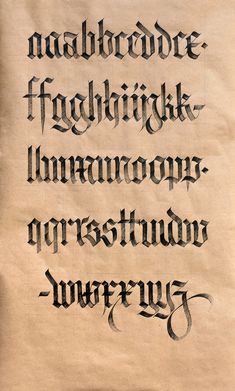 aaabbccddee.
ffgghhiijjkk-
llmmnnoopp.
qqrrssttuuvv
-wwxxyyz